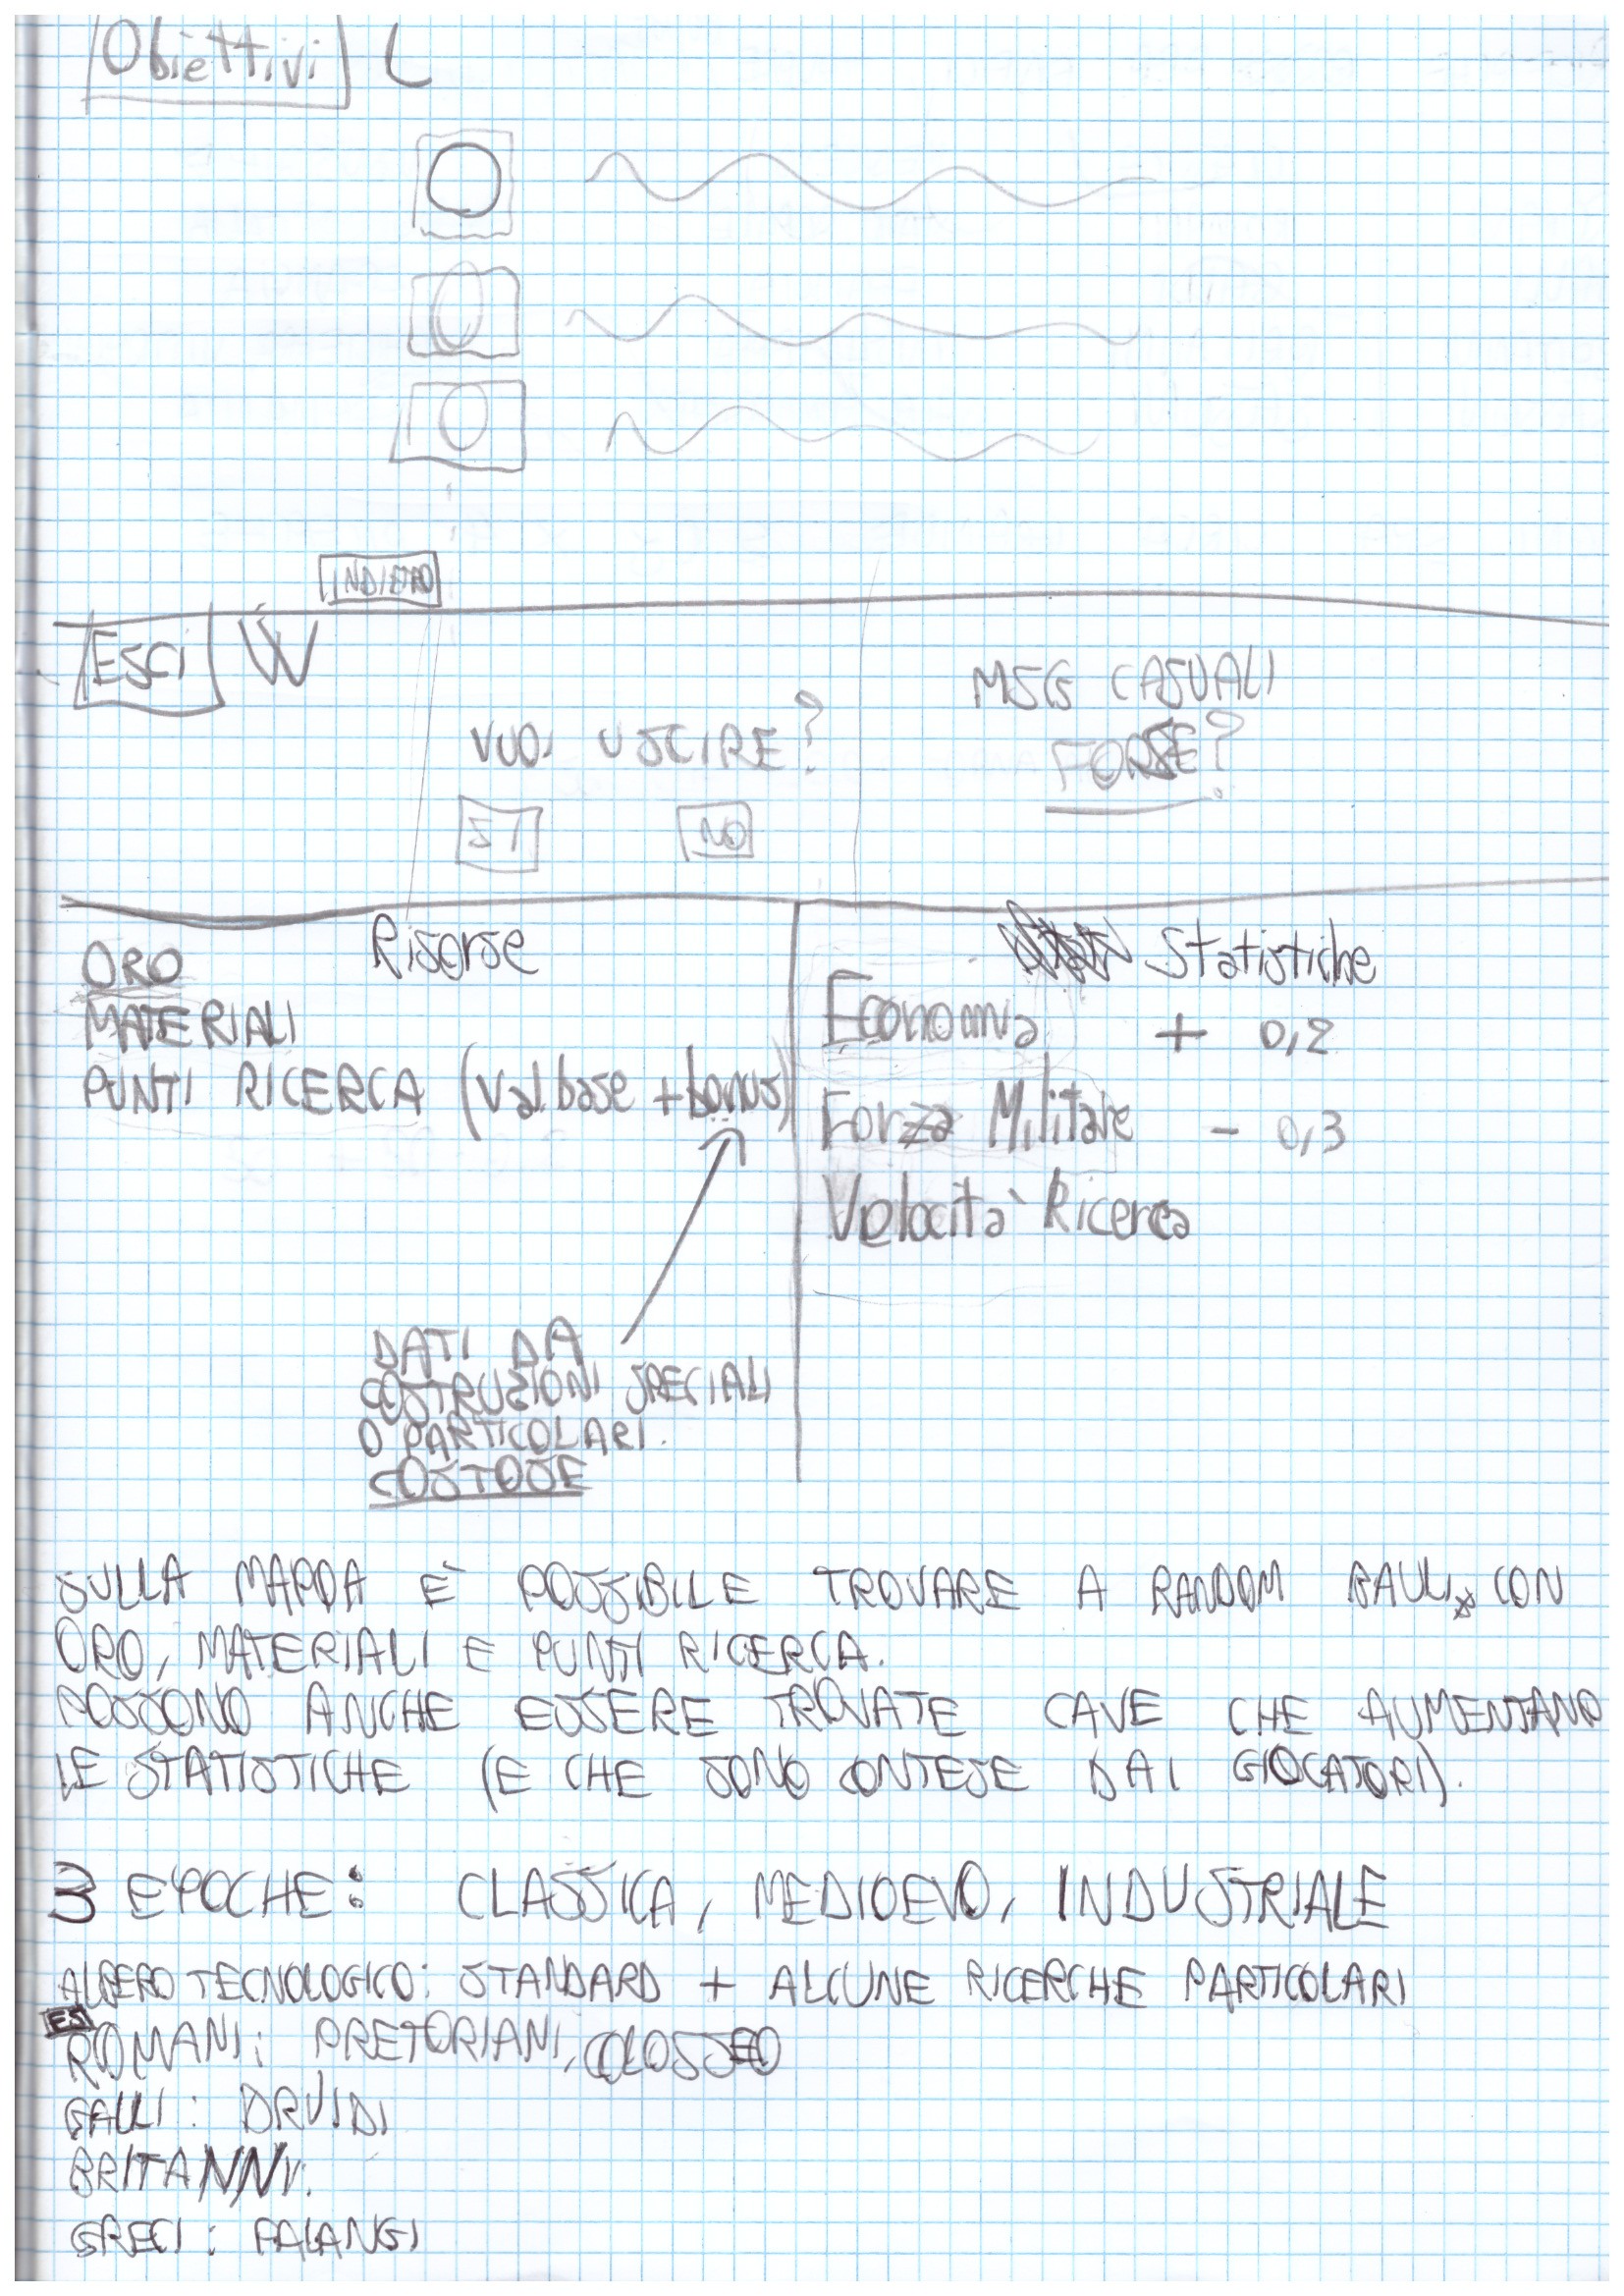 Obiettivi L
INDIETRO
ESCI W
MSG CASUALI
FORSE?
VUOI USCIRE?
SI NO
Risorse
ORO
MATERIALI
PUNTI RICERCA (val base + bonus)
DATI DA
COSTRUZIONI SPECIALI
O PARTICOLARI.
COSTOSE
Statistiche
Economia + 0,2
Forza Militare - 0,3
Velocità Ricerca
SULLA MAPPA È POSSIBILE TROVARE A RANDOM BAULI CON
ORO, MATERIALI E PUNTI RICERCA.
POSSONO ANCHE ESSERE TROVATE CAVE CHE AUMENTANO
LE STATISTICHE (E CHE SONO CONTESE DAI GIOCATORI).
3 EPOCHE: CLASSICA, MEDIOEVO, INDUSTRIALE
ALBERO TECNOLOGICO: STANDARD + ALCUNE RICERCHE PARTICOLARI
ES
ROMANI: PRETORIANI, COLOSSEO
GALLI: DRUIDI
BRITANNI:
GRECI: FALANGI